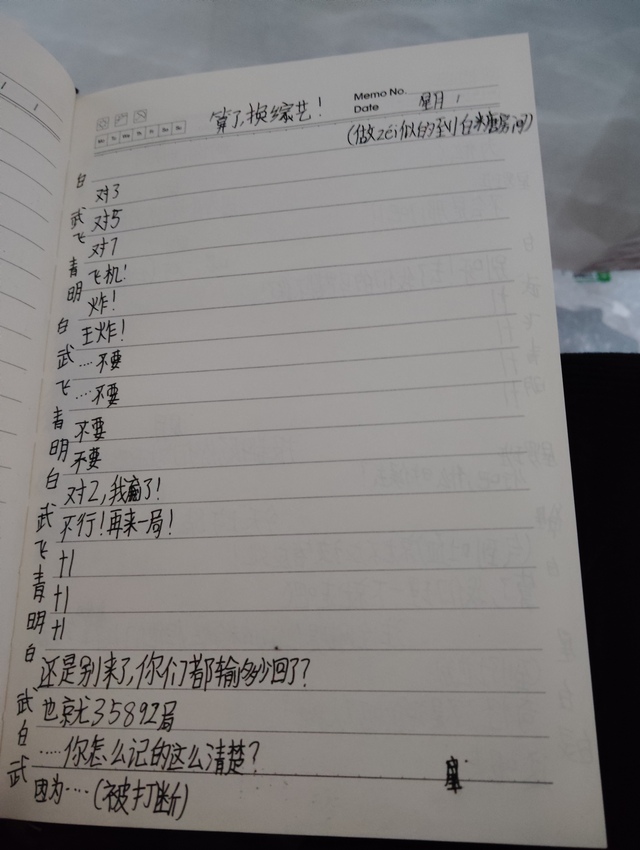 算了,换综艺!
Memo No.
Date
星月
Mo Tu We Th Fr Sa Su
(做zéi似的到白糖房间)
白 对3
武 对5
飞 对7
青 飞机!
明 炸!
白 王炸!
武 ····不要
飞 ····不要
青 不要
明 不要
白 对2,我赢了!
武 不行!再来一局!
飞 +1
青 +1
明 +1
白 还是别来了,你们都输多少回了?
武 也就35892局
白 ·····你怎么记的这么清楚?
武 因为····(被打断)